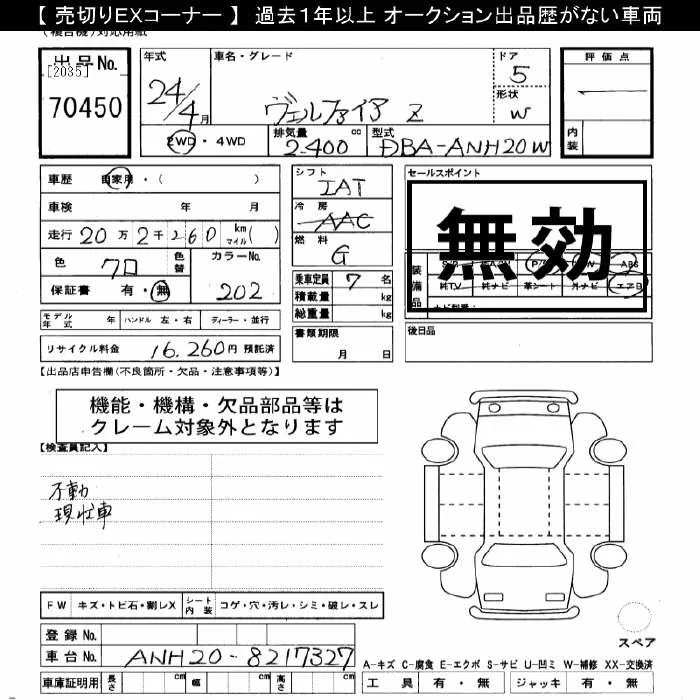 【 売切りEXコーナー 】 過去1年以上 オークション出品歴がない車両
出品No.
[2035]
70450
年式
24/4月
車名・グレード
ヴェルファイア Z
ドア
5
形状
W
評価点
内装
2WD・4WD
排気量 cc
2.400
型式
DBA-ANH20W
車歴 自家用・( )
車検 年 月
走行 20万2千260 km マイル( )
色 クロ
色替
カラーNo.
202
保証書 有・無
シフト
IAT
冷房
AAC
燃料
G
乗車定員 7 名
積載量 kg
総重量 kg
セールスポイント
無効
装備品
P/S
ABS
純TV 純ナビ 革シート 外ナビ エアB
モデル年式 年 ハンドル 左・右 ディーラー・並行
リサイクル料金 16.260円 預託済
書類期限
月 日
後日品
【出品店申告欄(不良箇所・欠品・注意事項等)】
機能・機構・欠品部品等は
クレーム対象外となります
【検査員記入】
不動
現状車
FW キズ・トビ石・割レX シート内装 コゲ・穴・汚レ・シミ・破レ・スレ
登録No.
車台No. ANH20-8217327
車庫証明用 長さ cm 幅 cm 高さ cm
スペア
A-キズ C-腐食 E-エクボ S-サビ U-凹ミ W-補修 XX-交換済
工具 有・無 ジャッキ 有・無